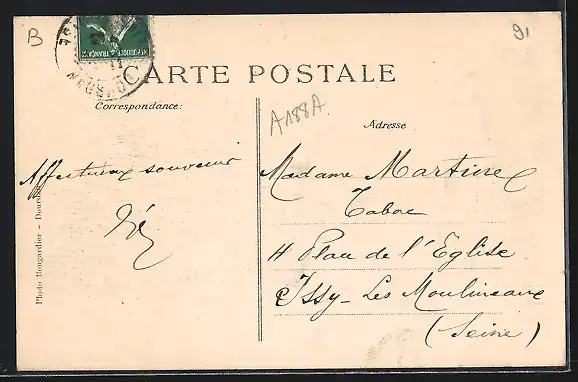 B
91
RÉPUBLIQUE FRANÇAISE
CARTE POSTALE
Correspondance:
A188A
Adresse
Affectueux souvenir
Madame Martinez
Tabac
4 Place de l'Eglise
Issy-Les Moulineaux
(Seine)
Photo Bougardier – Dourdan